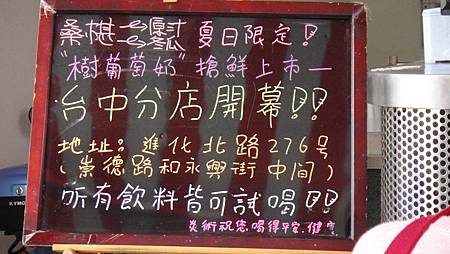 桑椹 夏日限定!
"樹葡萄奶"搶鮮上市—
台中分店開幕!!
地址:進化北路276号
(崇德路和永興街中間)
所有飲料皆可試喝!!
炎術祝您喝得平安.健
KYMCO